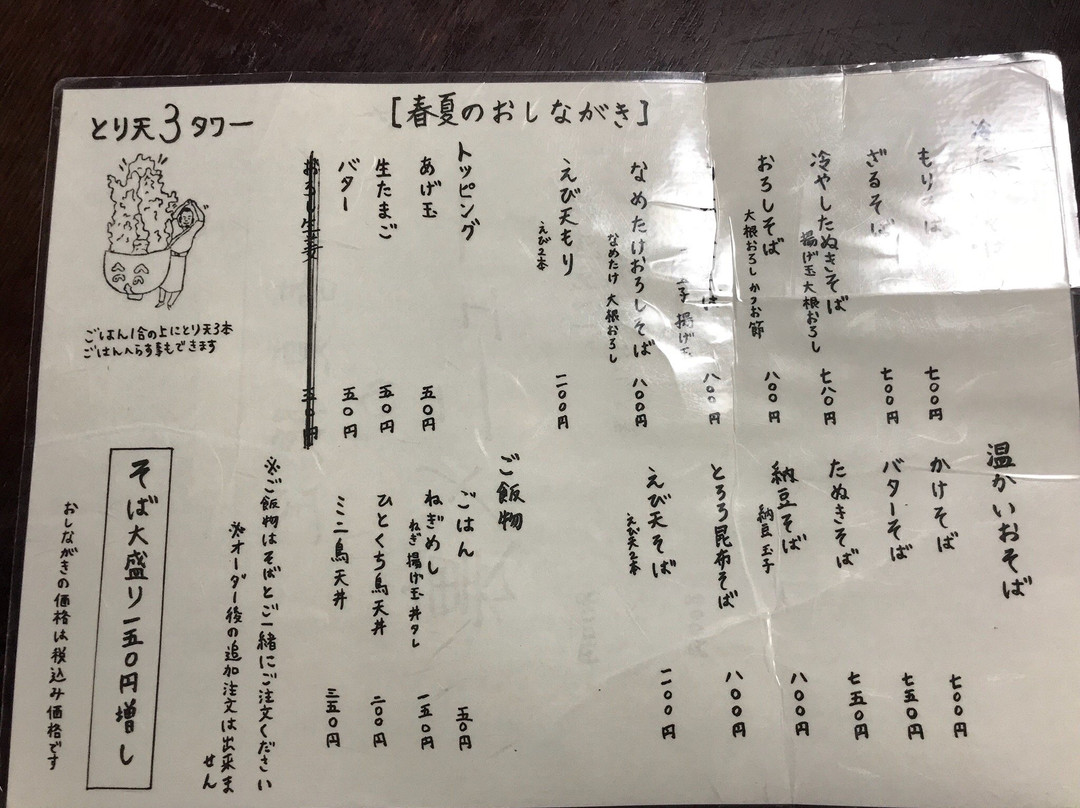 [春夏のおしながき]
もりそば 七〇〇円
ざるそば 七〇〇円
冷やしたぬきそば 七八〇円
揚げ玉 大根おろし
おろしそば 八〇〇円
大根おろし かつお節
八〇〇円
揚げ玉
なめたけおろしそば 八〇〇円
なめたけ 大根おろし
えび天もり 一二〇〇円
えび2本
トッピング
あげ玉 五〇円
生たまご 五〇円
バター 五〇円
おろし生姜 五〇円
とり天3タワー
ごはん1合の上にとり天3本
ごはんへらす事もできます
温かいおそば
かけそば 七〇〇円
バターそば 七五〇円
たぬきそば 七五〇円
納豆そば 八〇〇円
納豆 玉子
とろろ昆布そば 八〇〇円
えび天そば
えび天2本
ご飯物
ごはん 五〇円
ねぎめし 一五〇円
ねぎ 揚げ玉 丼タレ
ひとくち鳥天丼 二〇〇円
ミニ鳥天丼 三五〇円
※ご飯物はそばとご一緒にご注文ください
※オーダー後の追加注文は出来ません
そば大盛り一五〇円増し
おしながきの価格は税込み価格です